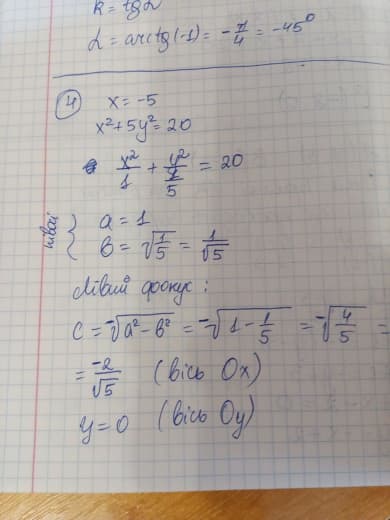 k = tg α
α = arctg(-1) = -π/4 = -45°
4 x = -5
x² + 5y² = 20
x²/1 + y²/(1/5) = 20
a = 1
b = √(1/5) = 1/√5
Лівий фокус:
c = -√(a² - b²) = -√(1 - 1/5) = -√(4/5) =
= -2/√5 (вісь Ox)
y = 0 (вісь Oy)